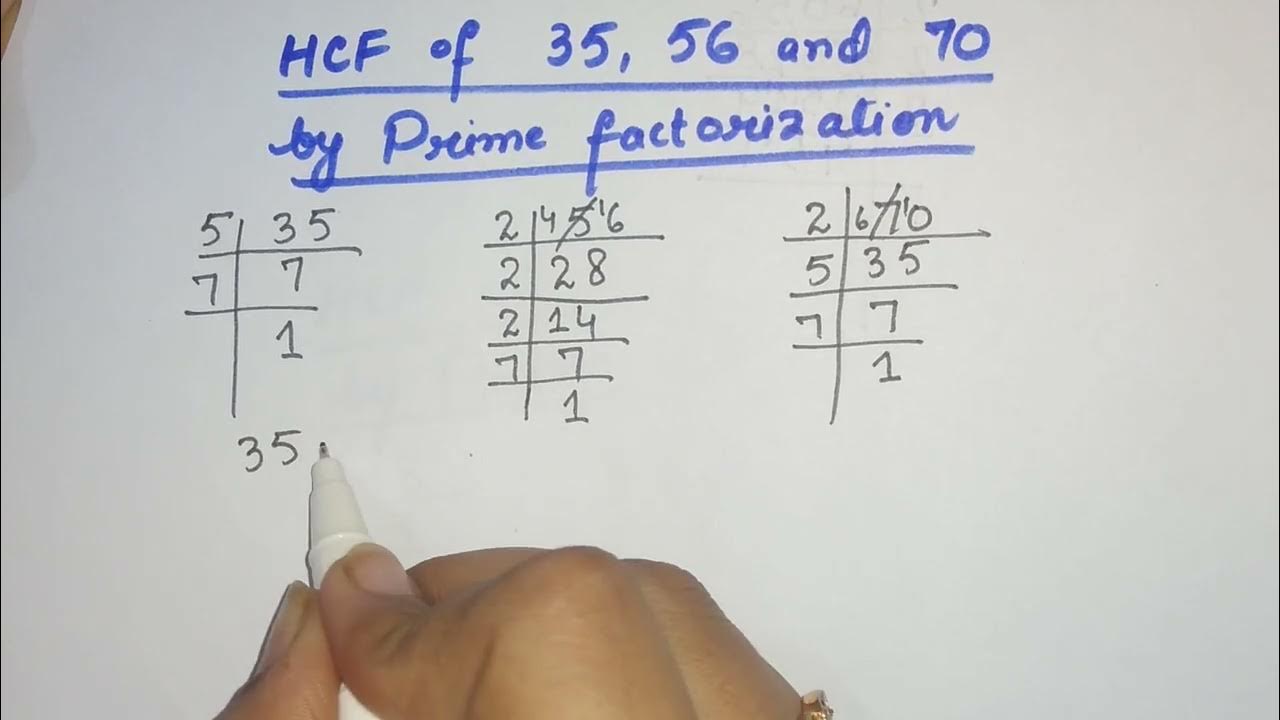 HCF of 35, 56 and 70
by Prime factorization
5 | 35
7 | 7
1
2 | 4 5 1 6
2 | 28
2 | 14
7 | 7
1
2 | 6 7 1 0
5 | 35
7 | 7
1
35